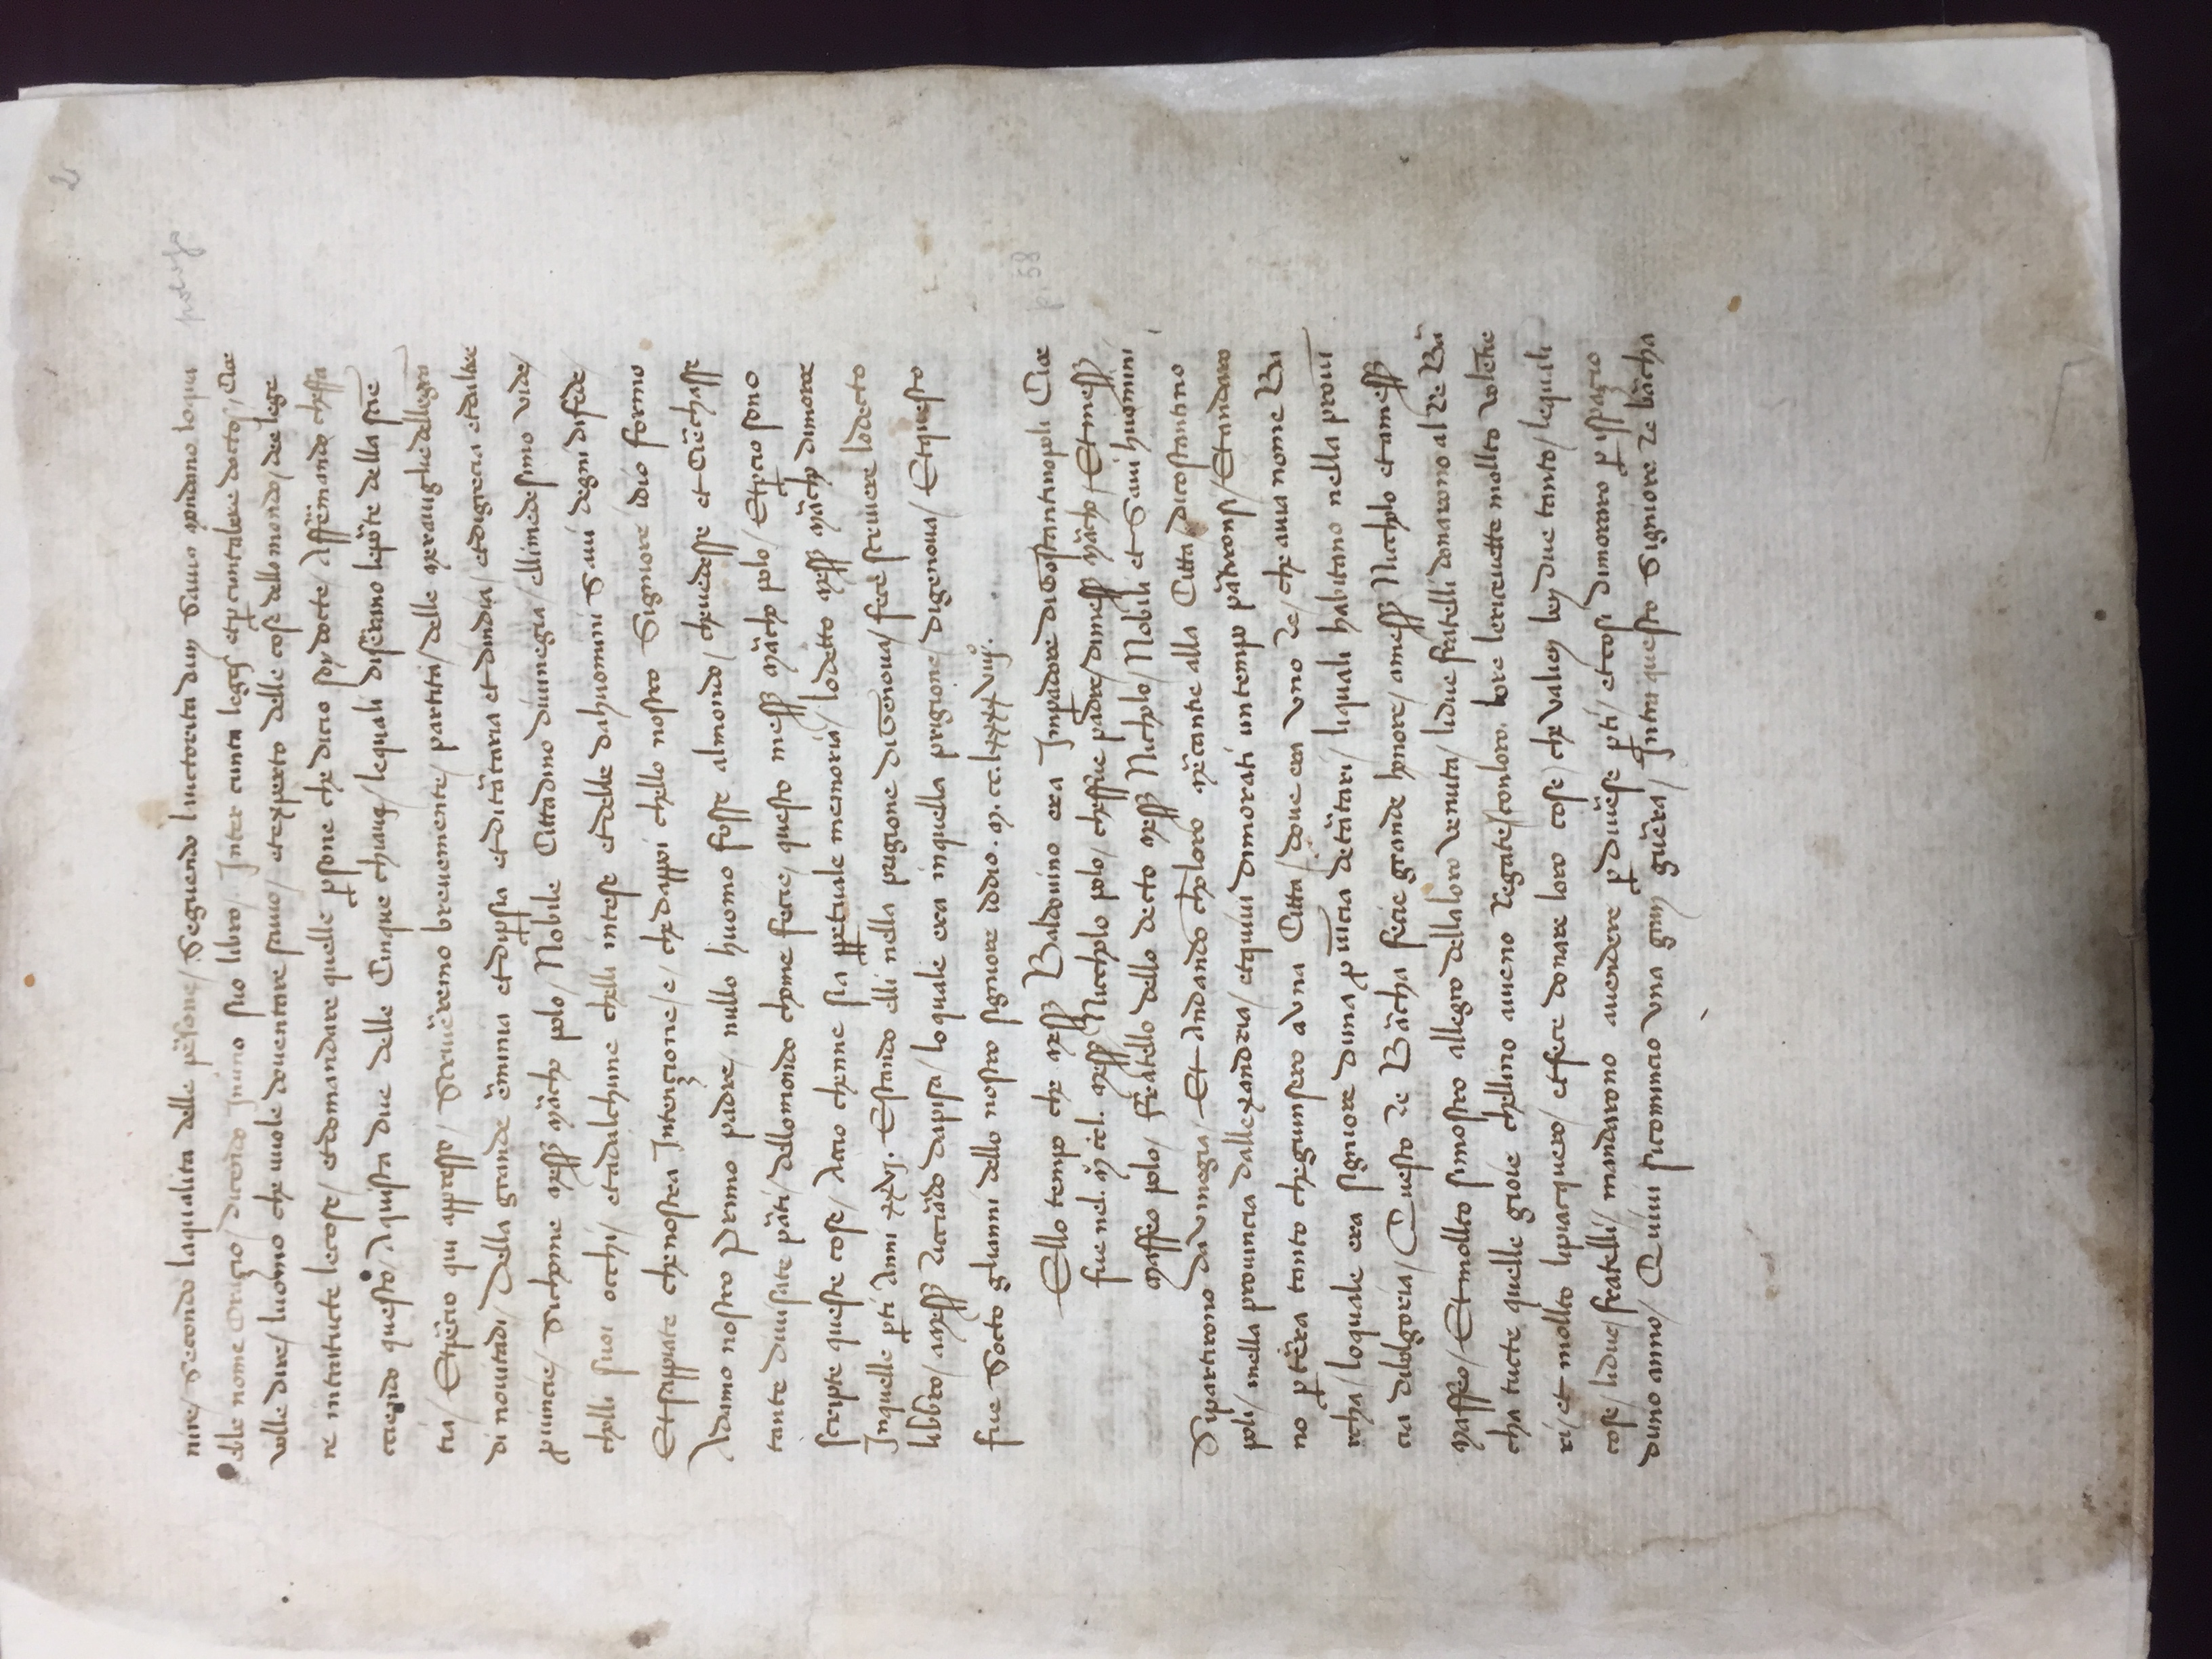 2
nire / Secondo laqualita delle p̃sone / Seguendo lauctorita dun Savio mondano loqua
polofo
ebbe nome Orazio / dicendo Inuno suo libro / Inter cunta leges et ꝑ cuntabere doctos / Cioe
volle dire / luomo che vuole doventare savio / et experto delle cose dellomondo / dee lege
re intratucte lecose / et domandare quelle ꝑsone che dicio son docte / Affẽmando cheffa
cciendo questo / Aquista due delle Cinque chiavi / lequali disẽrano lepõte della sciẽ
tia / Et pẽcio qui appresso / Scrivẽremo brevemente / partita / delle meraviglie dellegrã
di novitadi / Della grande ẽminia et diꝑsia et ditãtaria et dindia / et digrecia et daltre
ꝓvincie / Sichome mess̃ mãcho polo / Nobile Cittadino divinegia / ellimedesimo vide /
cholli suoi occhi / et adalchune chelli intese et debbe dahuomini Savi degni difede /
Et sappiate chenostra Intenzione / e / che dappoi chello nostro Signiore idio formo
Adamo nostro Primo padre / nullo huomo fosse almondo / chevedesse et ciẽchasse
tante divisate pãti / dellomondo chome fecie / questo mess̃ mãcho polo / Et ꝑcio sono
scripte queste cose / Accio chenne sia ꝑpetuale memoria / lodetto mess̃ mãcho dimoroe
Inquelle ꝑti Anni xxvj. Estando elli nella prigione diGenova / fece scrivere lodecto
libbro / amess̃ Ricciãdo dapisa / lo quale era inquella prigione / digenova / Et questo
fue Socto glianni dello nostro signiore iddio . M. cc. lxxxxviijº.
Ello tempo che mess̃ Baldovino era Imꝑadore diGostantinopoli Cioe
p. 58
fue nel. M ccl. mess̃ Niccholo polo / cheffue padre / dimess̃ mãcho / Et mess̃
Maffeo polo / Fratello dello decto mess̃ Nicholo / Nobili et Savi huomini
Sipartirono da vinegia / Et Andando cholloro mẽcantie alla Citta / dicostantino
poli / inella provincia dallexandria / et quivi dimorati un tempo pãtironsi / Et andaro
no ꝑ tẽra tanto chegiunsero a una Citta / dove era uno Re / che avia nome Ba
rcha / loquale era signiore duna ꝓvĩcia detãtari / liquali habitano nella provĩ
cia dibolgoria / Questo Re Bãcha fecie grande honore / amess̃ Niccholo et amess̃
Maffeo / Et mollto simostro allegro dellaloro venuta / lidue fratelli donarono al Re Bã
cha tucte quelle gioie chellino aveno Regate / conloro. lo re lericevette mollto volẽtie
ri / et mollto lipiacquero / et fece donare loro cose / che valien ben due tanto / lequali
cose / lidue / fratelli / mandarono avendere ꝑ divẽse ꝑti / et cosi dimoraro ꝑ ispazio
duno anno / Quivi sicomincio una gran guẽra / Intra questo Signiore Re bãcha